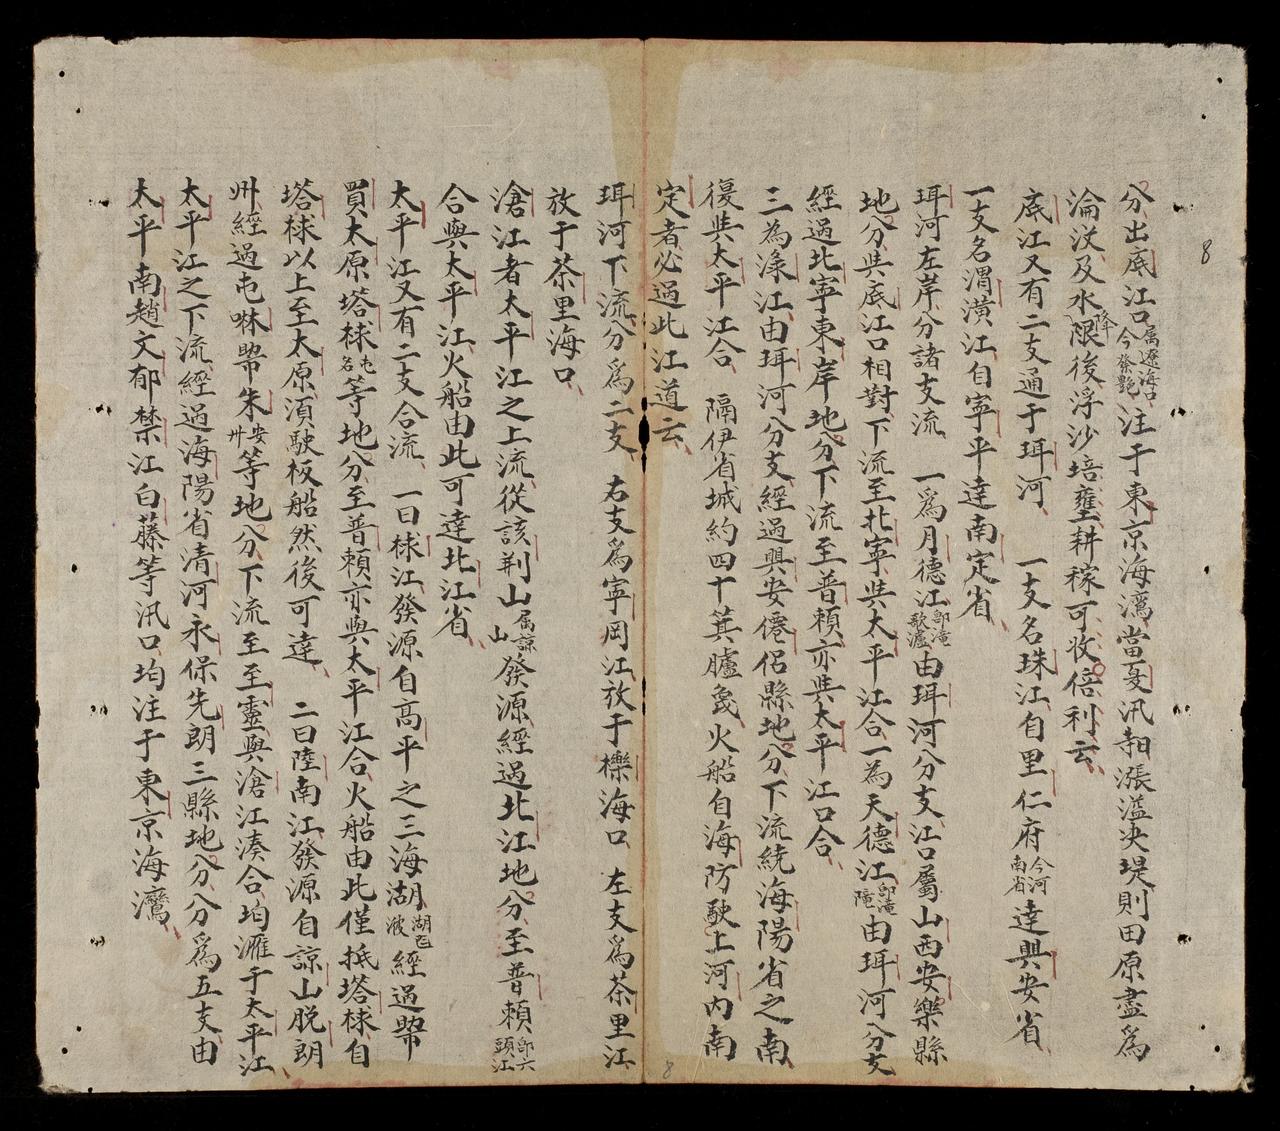 8
分出底江口属遼海口今發艷注于東京海灣當夏汛朝漲溢决堤則田原盡爲
淪汶及水降限後浮沙培壅耕稼可收倍利云
底江又有二支通于珥河 一支名珠江自里仁府今河南省達興安省
一支名渭潢江自寧平達南定省
珥河左岸分諸支流 一爲月德江即滝歌瀘由珥河分支江口屬山西安樂縣
地分與底江口相對下流至北寧與太平江合一為天德江即滝由珥河分支
經過北寧東岸地分下流至普賴亦與太平江口合
三為淥江由珥河分支經過興安僊侣縣地分下流繞海陽省之南
復與太平江合 隔伊省城約四十箕臚幾火船自海防駛上河内南
定者必過此江道云
珥河下流分爲二支 右支爲寧岡江放于櫟海口 左支爲茶里江
放于茶里海口
滄江者太平江之上流從該荆山属諒山發源經過北江地分至普賴即六頭江
合與太平江火船由此可達北江省
太平江又有二支合流 一曰梂江發源自高平之三海湖湖芭波經過幣
買太原塔梂屯名等地分至普賴亦與太平江合火船由此僅抵塔梂自
塔梂以上至太原湏駛板船然後可達 二曰陸南江發源自諒山脱朗
州經過屯啉幣朱安州等地分下流至至靈與滄江湊合均滙于太平江
太平江之下流經過海陽省清河永保先朗三縣地分分爲五支由
太平南趙文郁禁江白藤等汛口均注于東京海灣
8